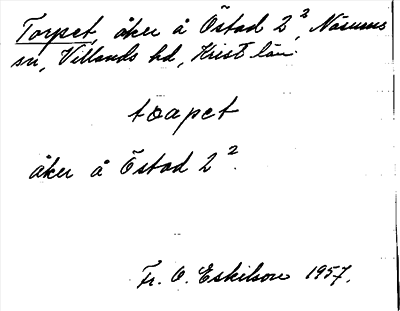 Torpet, åker å Östad 2², Näsums
sn, Villands hd, Krist. län.
toapet
åker å Östad 2².
Fr. O. Eskilson 1957.